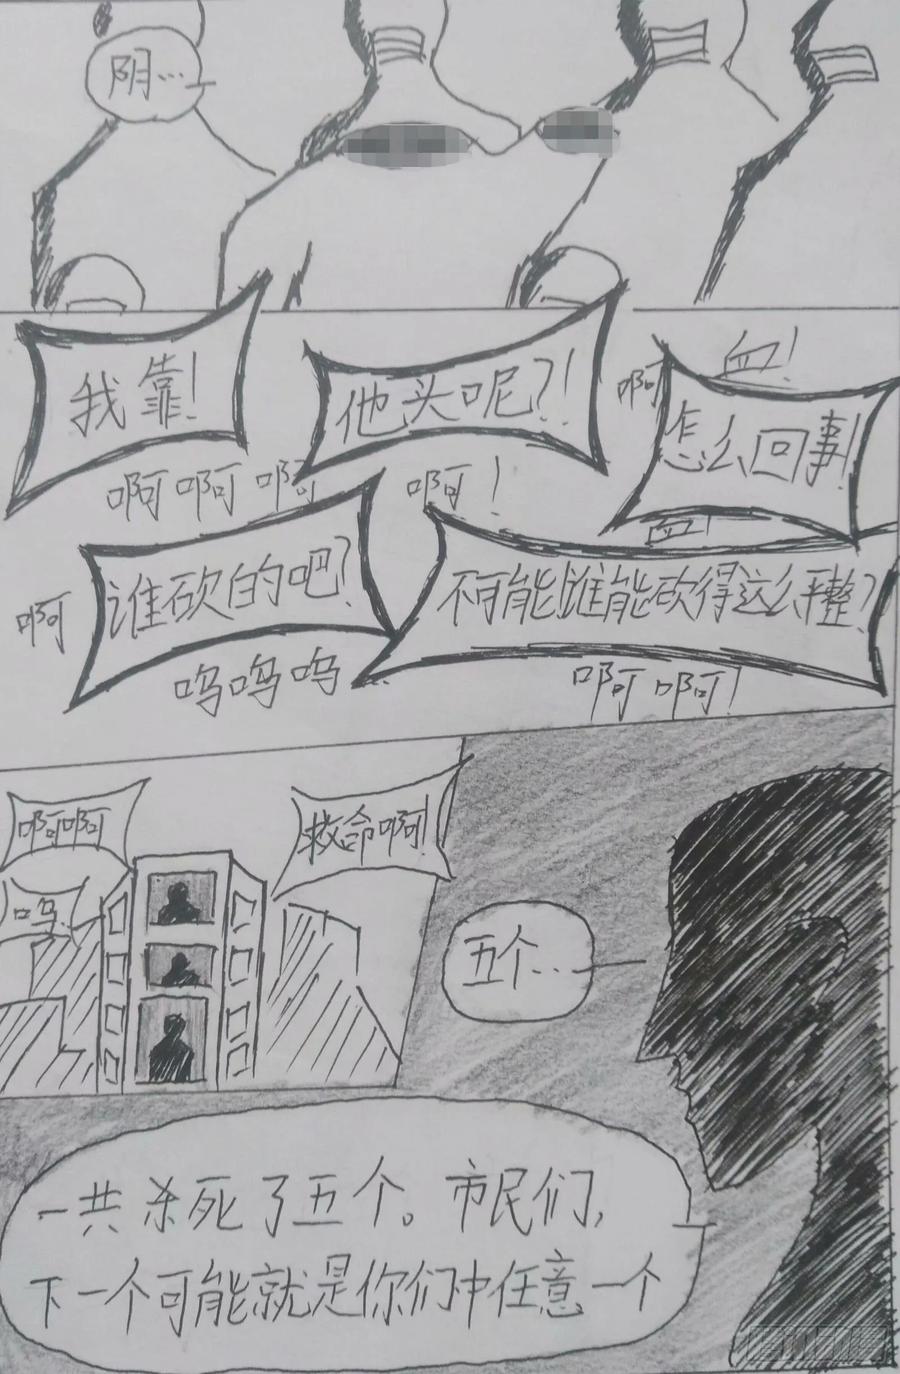 阴…
我靠！
他头呢？！
血！
啊
怎么回事！
啊啊啊
啊！
血！
谁砍的吧？
不可能！谁能砍得这么平整？
啊
呜呜呜
啊啊！
啊啊啊
救命啊！
呜
五个…
一共杀死了五个。市民们，
下一个可能就是你们中任意一个